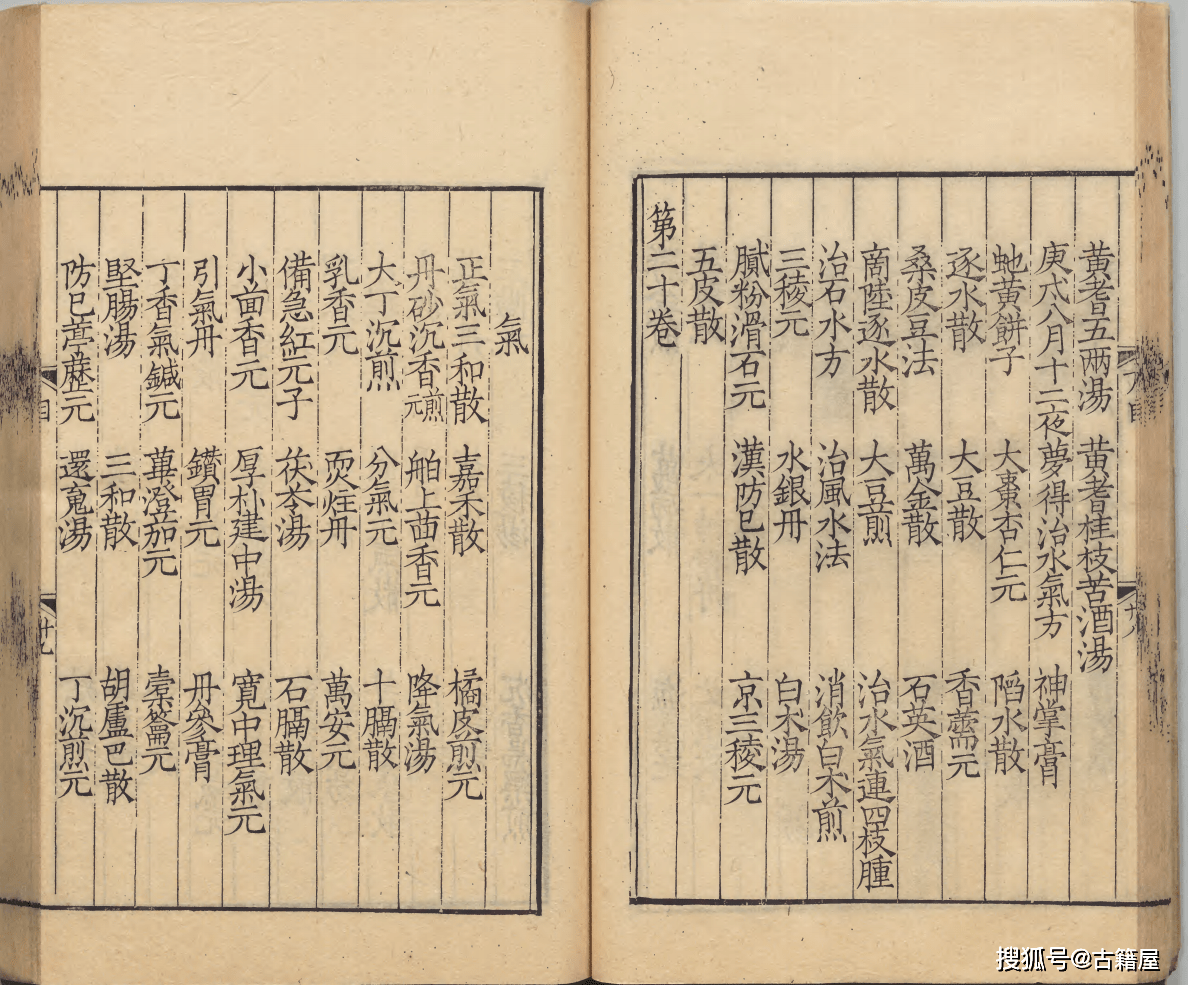 黃耆五兩湯 黃耆桂枝苦酒湯
庚戌八月十二夜夢得治水氣方 神掌膏
虵黃餅子 大棗杏仁元 䧟水散
逐水散 大豆散 香薷元
桑皮豆法 萬金散 石英酒
商陸逐水散 大豆煎 治水氣連四枝腫
治石水方 治風水法 消飲白术煎
三稜元 水銀丹 白术湯
膩粉滑石元 漢防巳散 京三稜元
五皮散
第二十卷
氣
正氣三和散 嘉禾散 橘皮煎元
丹砂沉香煎元 舶上茴香元 降氣湯
大丁沉煎 分氣元 十膈散
乳香元 炳炷丹 萬安元
備急紅元子 茯苓湯 石膈散
小茴香元 厚朴建中湯 寬中理氣元
引氣丹 鑽胃元 丹參膏
丁香氣鍼元 蓽澄茄元
堅腸湯 三和散 胡盧巴散
防巳葶藶元 還䰟湯 丁沉煎元
目
十九
搜狐号@古籍屋